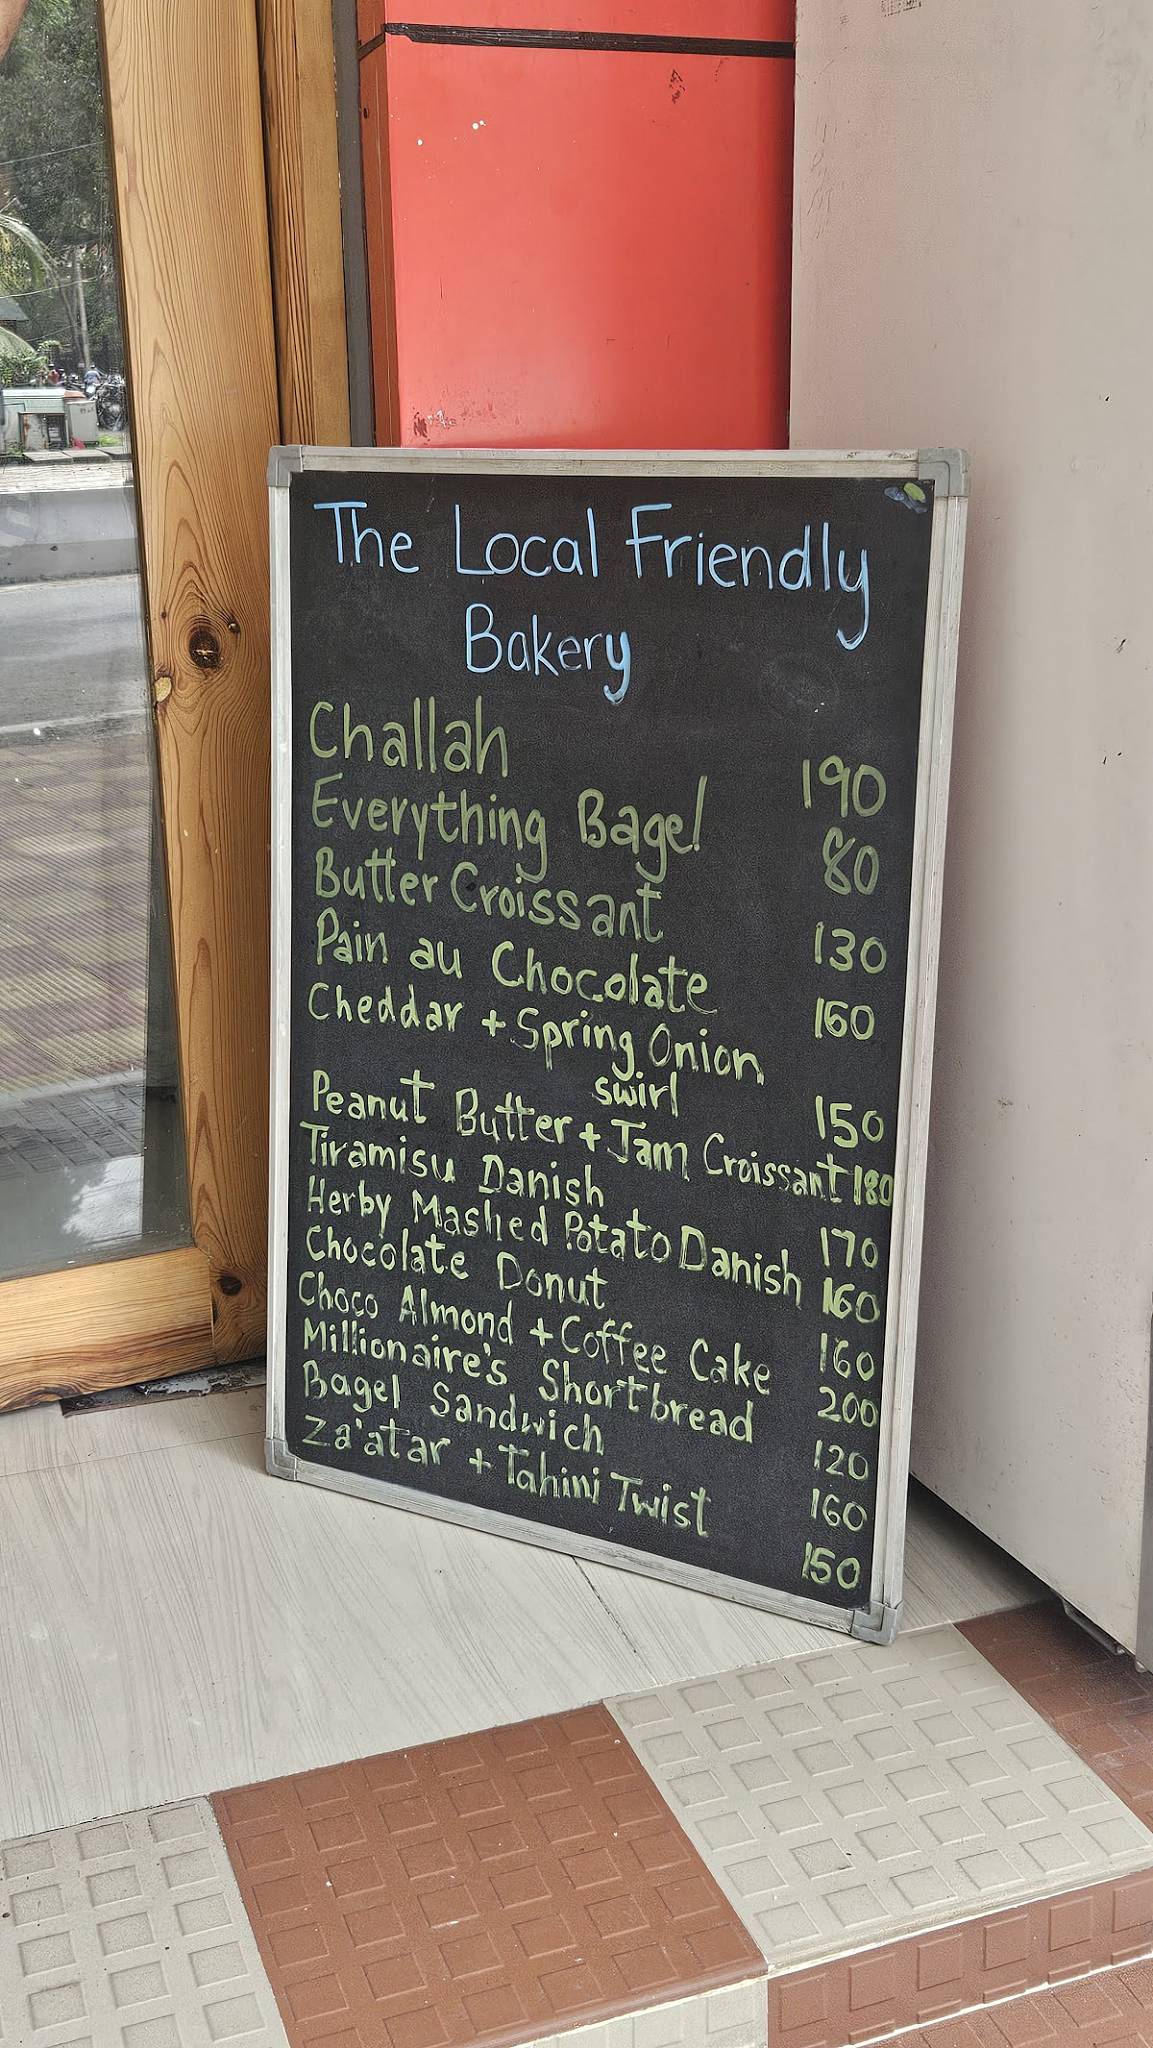 The Local Friendly
Bakery
Challah 190
Everything Bagel 80
Butter Croissant 130
Pain au Chocolate 160
Cheddar + Spring Onion
swirl 150
Peanut Butter + Jam Croissant 180
Tiramisu Danish 170
Herby Mashed Potato Danish 160
Chocolate Donut 160
Choco Almond + Coffee Cake 200
Millionaire's Shortbread 120
Bagel Sandwich 160
Za'atar + Tahini Twist 150